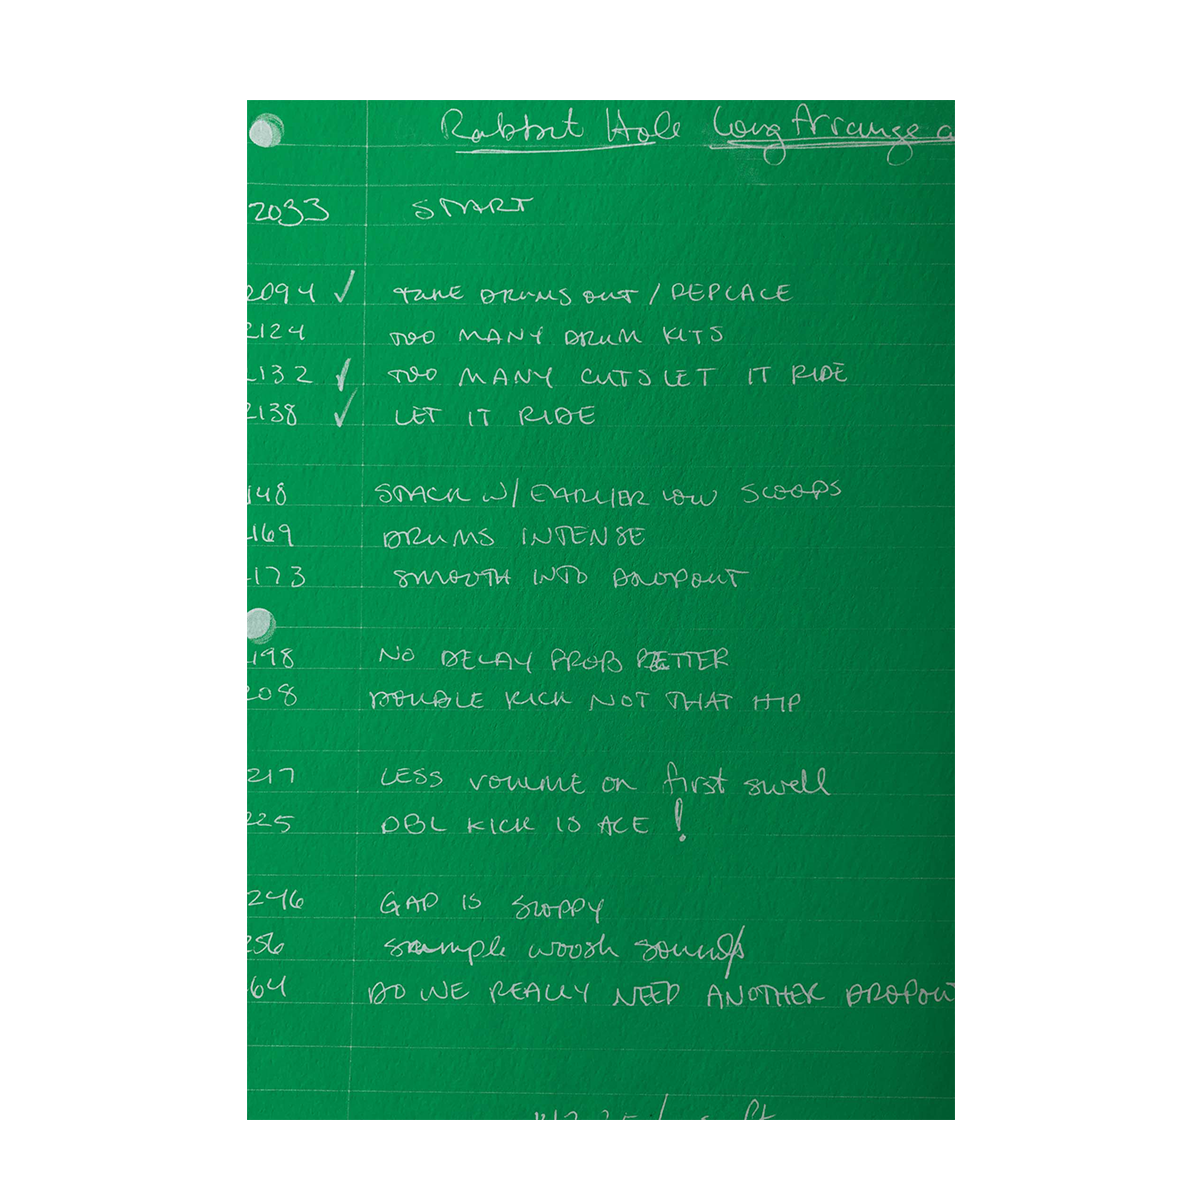 Rabbit Hole Long Arrange a
2033 START
2094 ✓ TAKE DRUMS OUT / REPLACE
2124 TOO MANY DRUM KITS
2132 ✓ TOO MANY CUTS LET IT RIDE
2138 ✓ LET IT RIDE
148 STACK W/ EARLIER LOW SCOOPS
169 DRUMS INTENSE
173 SMOOTH INTO DROPOUT
198 NO DELAY PROB BETTER
208 DOUBLE KICK NOT THAT HIP
217 LESS VOLUME ON first swell
225 DBL KICK IS ACE !
246 GAP IS SLOPPY
256 sample woosh sounds
64 DO WE REALLY NEED ANOTHER DROPOUT